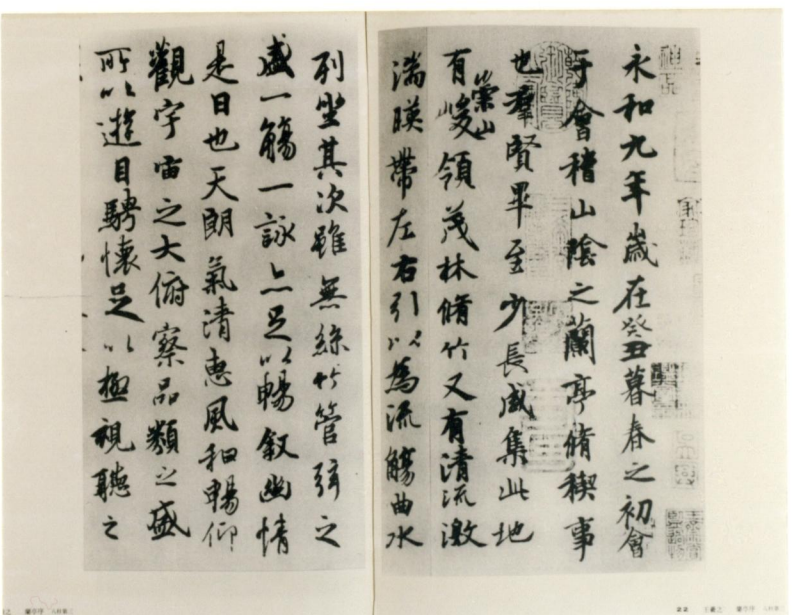 永和九年歲在癸丑暮春之初會
于會稽山陰之蘭亭脩稧事
也羣賢畢至少長咸集此地
有崇山峻領茂林脩竹又有清流激
湍暎帶左右引以為流觴曲水
列坐其次雖無絲竹管弦之
盛一觴一詠亦足以暢敘幽情
是日也天朗氣清惠風和暢仰
觀宇宙之大俯察品類之盛
所以遊目騁懷足以極視聽之
王羲之 蘭亭序
蘭亭序